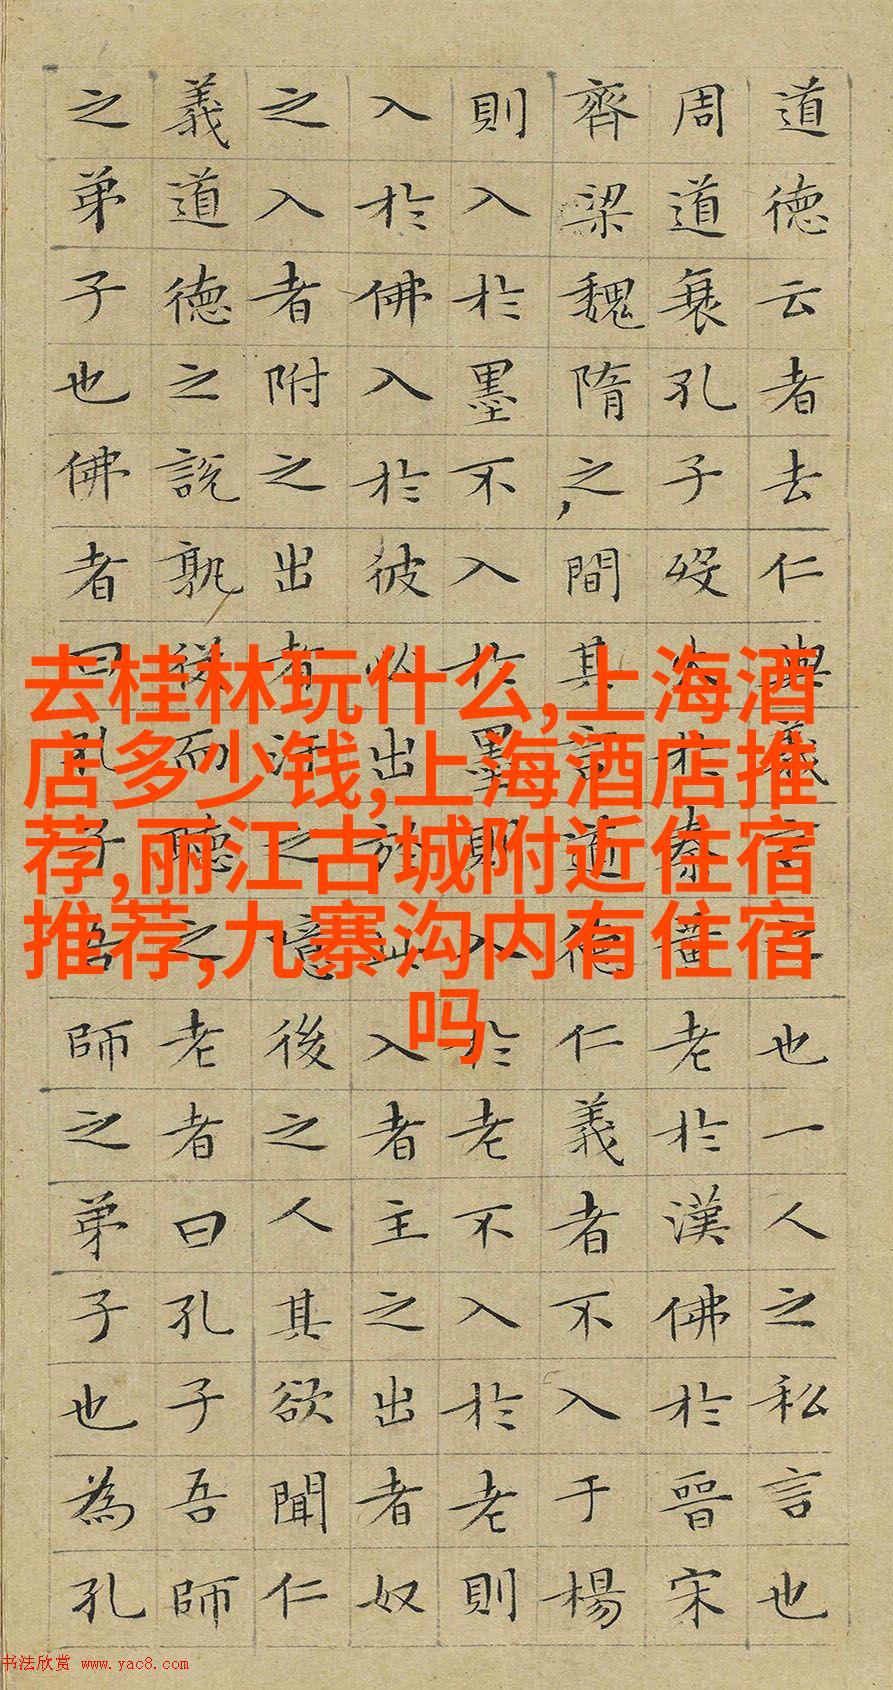 道德云者去仁與義言之也一人之私言也
周道衰孔子歿火於秦黃老於漢佛於晉宋
齊梁魏隋之間其言道德仁義者不入于楊
則入於墨不入於墨則入於老不入於老則
入於佛入於彼必出於此入者主之出者奴
之入者附之出者汙之噫後之人其欲聞仁
義道德之說孰從而聽之老者曰孔子吾師
之弟子也佛者曰孔子吾師之弟子也為孔
去桂林玩什么,上海酒
店多少钱,上海酒店推
荐,丽江古城附近住宿
推荐,九寨沟内有住宿
吗
书法欣赏 www.yac8.com